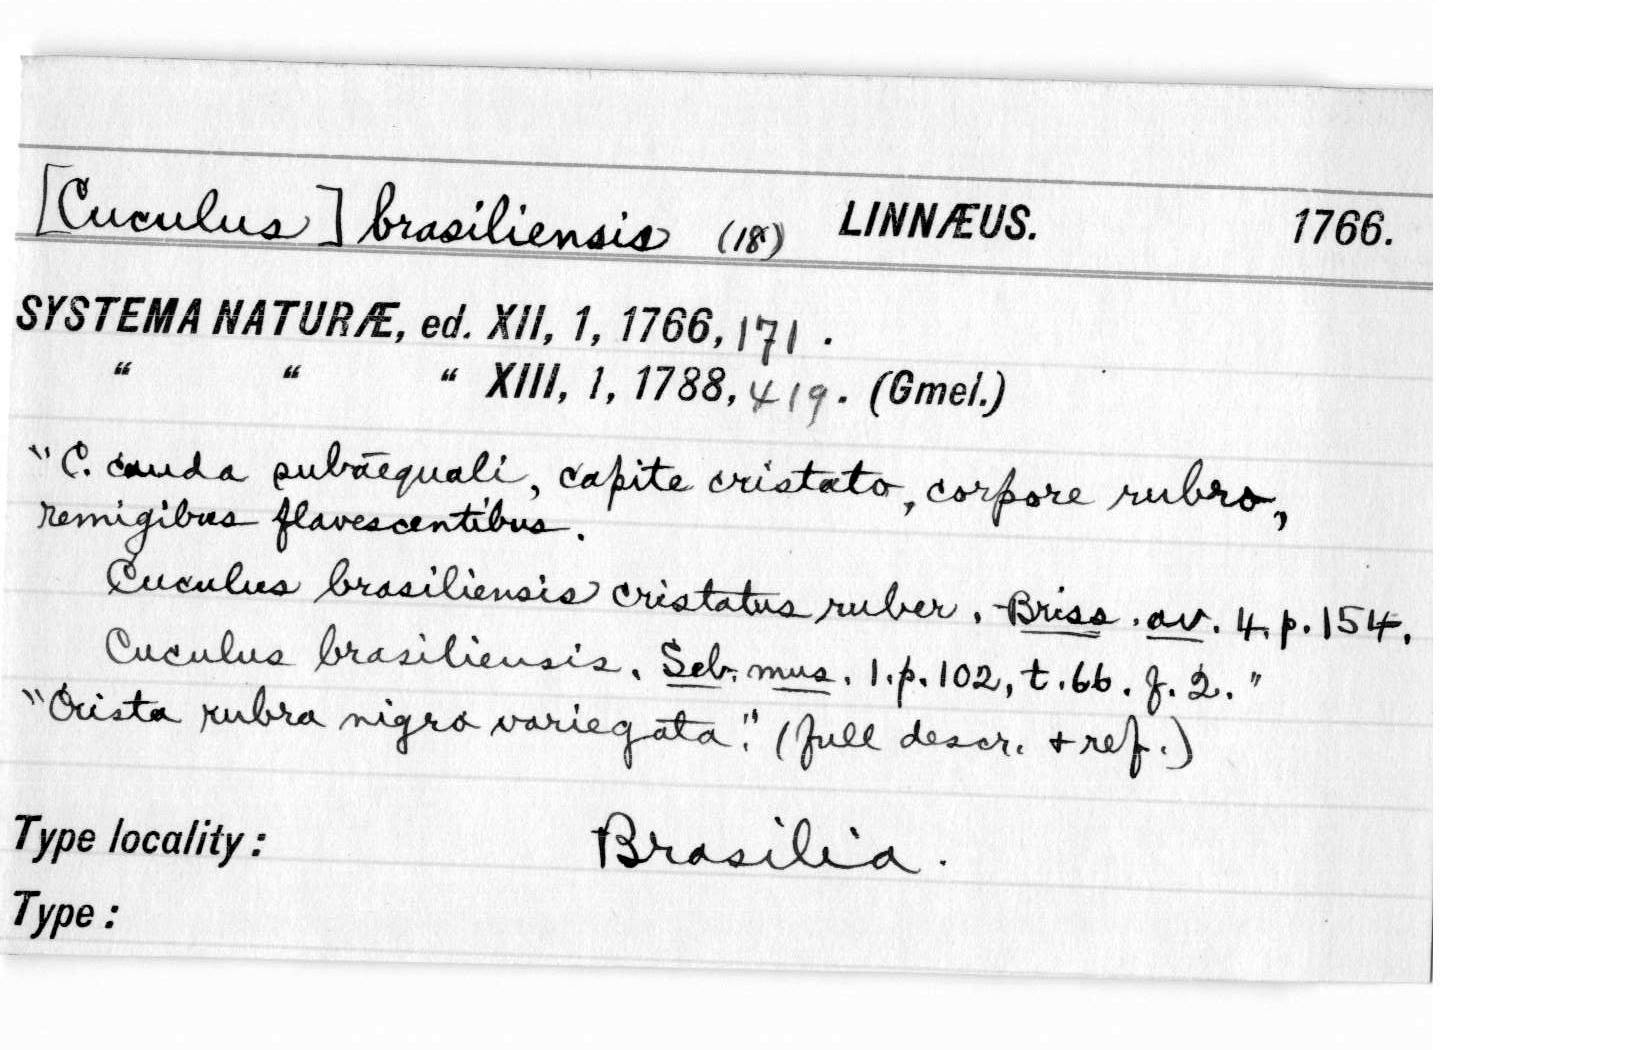 [Cuculus] brasiliensis (18) LINNÆUS. 1766.
SYSTEMA NATURÆ, ed. XII, 1, 1766, 171.
“ “ “ XIII, 1, 1788, 419. (Gmel.)
"C. cauda subaequali, capite cristato, corpore rubro,
remigibus flavescentibus.
Cuculus brasiliensis cristatus ruber. Briss. av. 4. p. 154.
Cuculus brasiliensis. Seb. mus. 1. p. 102, t. 66. f. 2."
"Crista rubra nigro variegata." (full descr. + ref.)
Type locality: Brasilia.
Type: